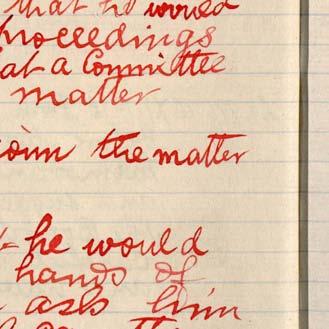 that he would
proceedings
at a Committee
matter
the matter
he would
hands of
ask him